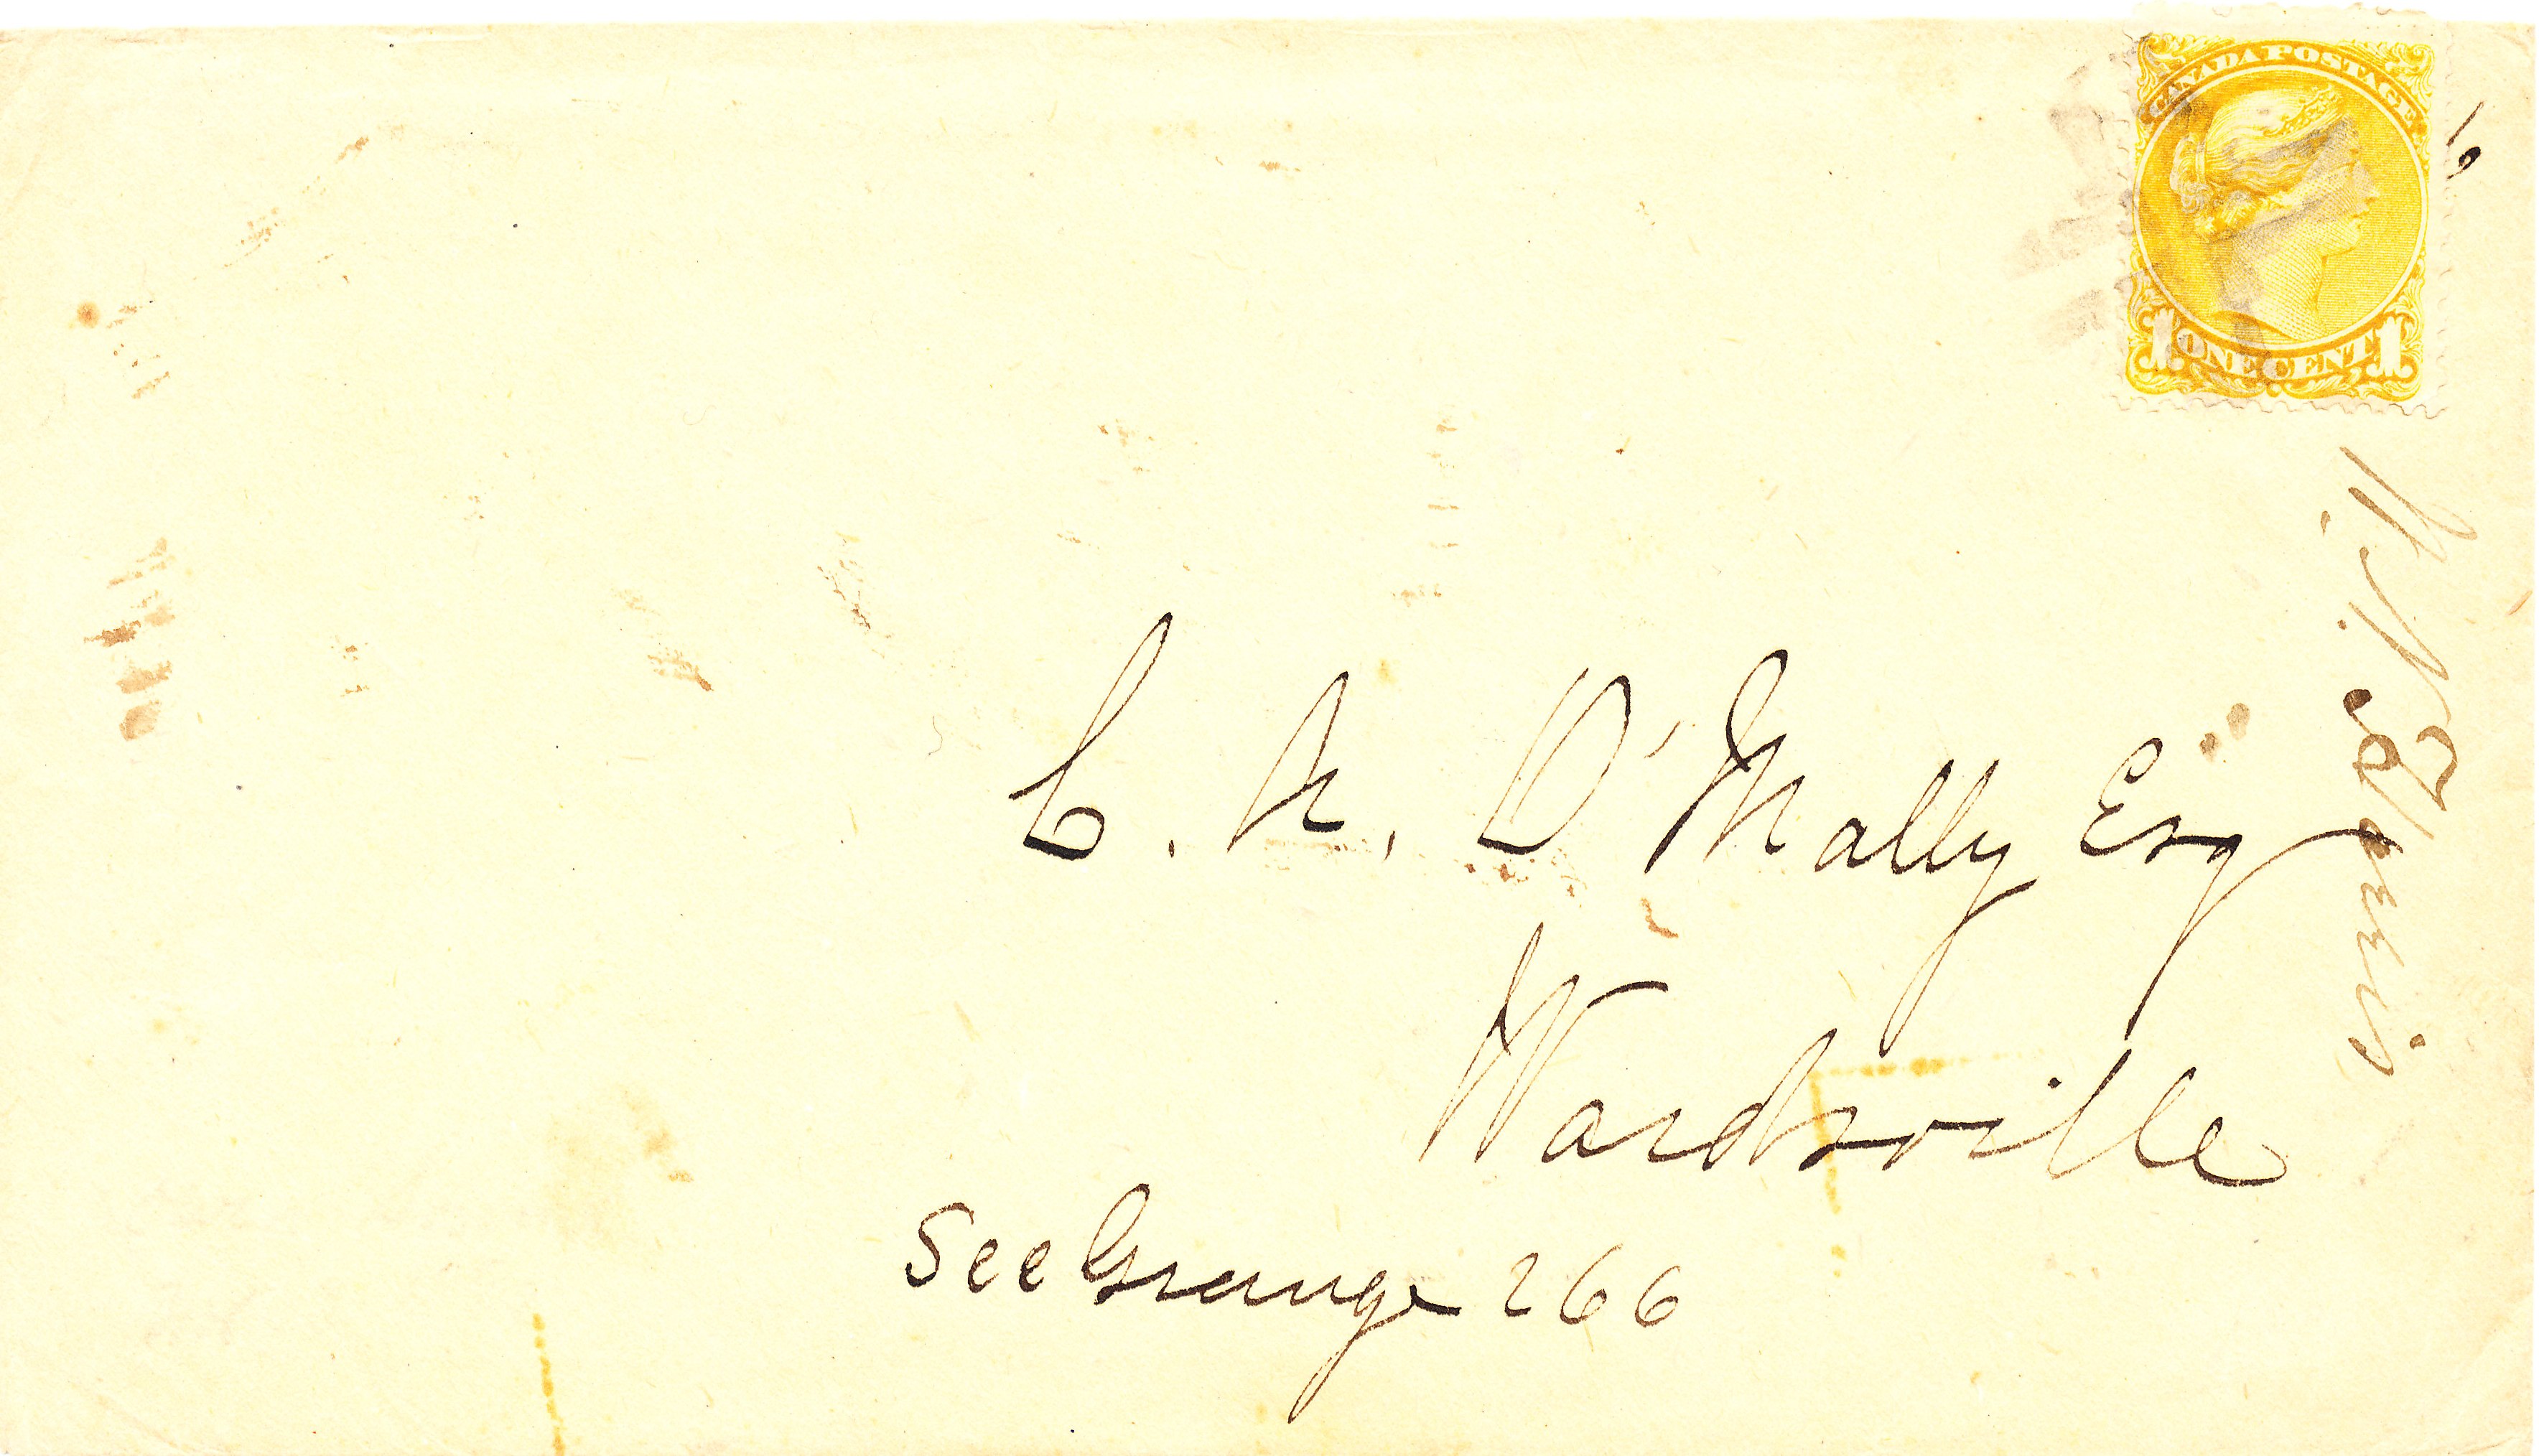 CANADA POSTAGE
1 ONE CENT 1
C. N. O'Mally Esq
Wardsville
See Grange 266